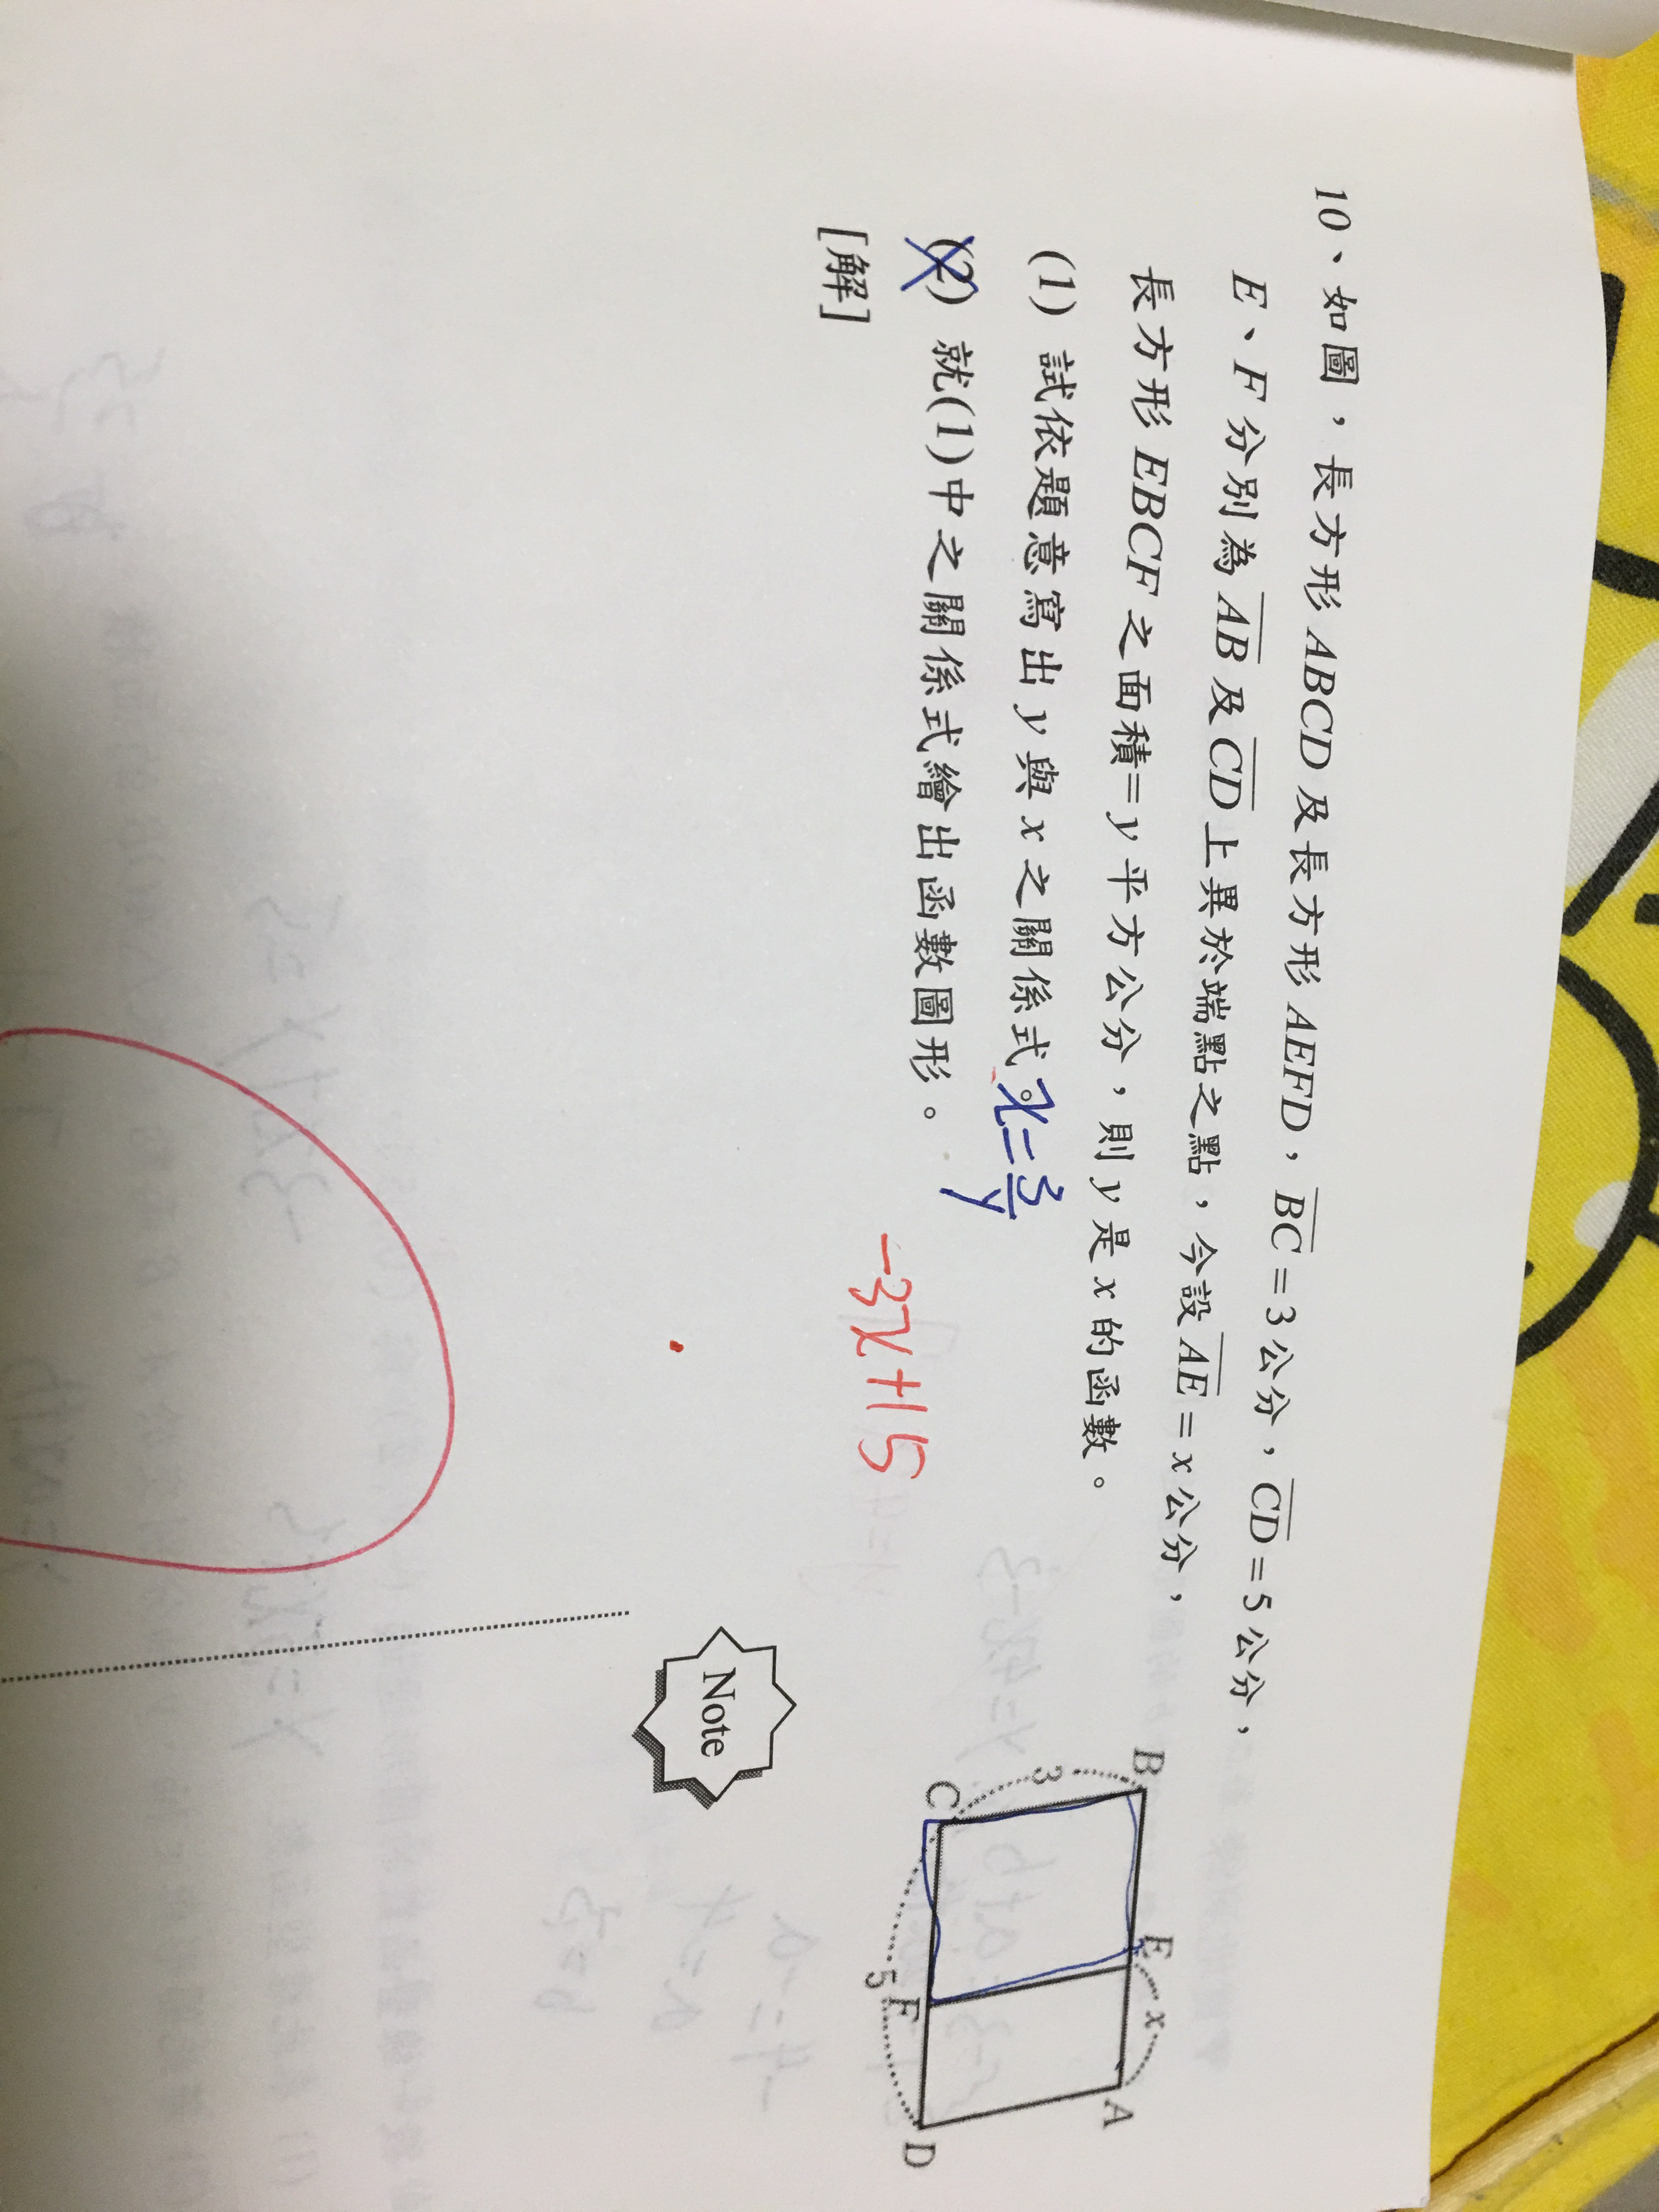 10、如圖，長方形ABCD及長方形AEFD，BC=3公分，CD=5公分，
E、F分別為AB及CD上異於端點之點，今設AE=x公分，
長方形EBCF之面積=y平方公分，則y是x的函數。
(1) 試依題意寫出y與x之關係式。x=3/y
(2) 就(1)中之關係式繪出函數圖形。
-3x+15
[解]
B
E
x
A
3
C
5
F
D
Note